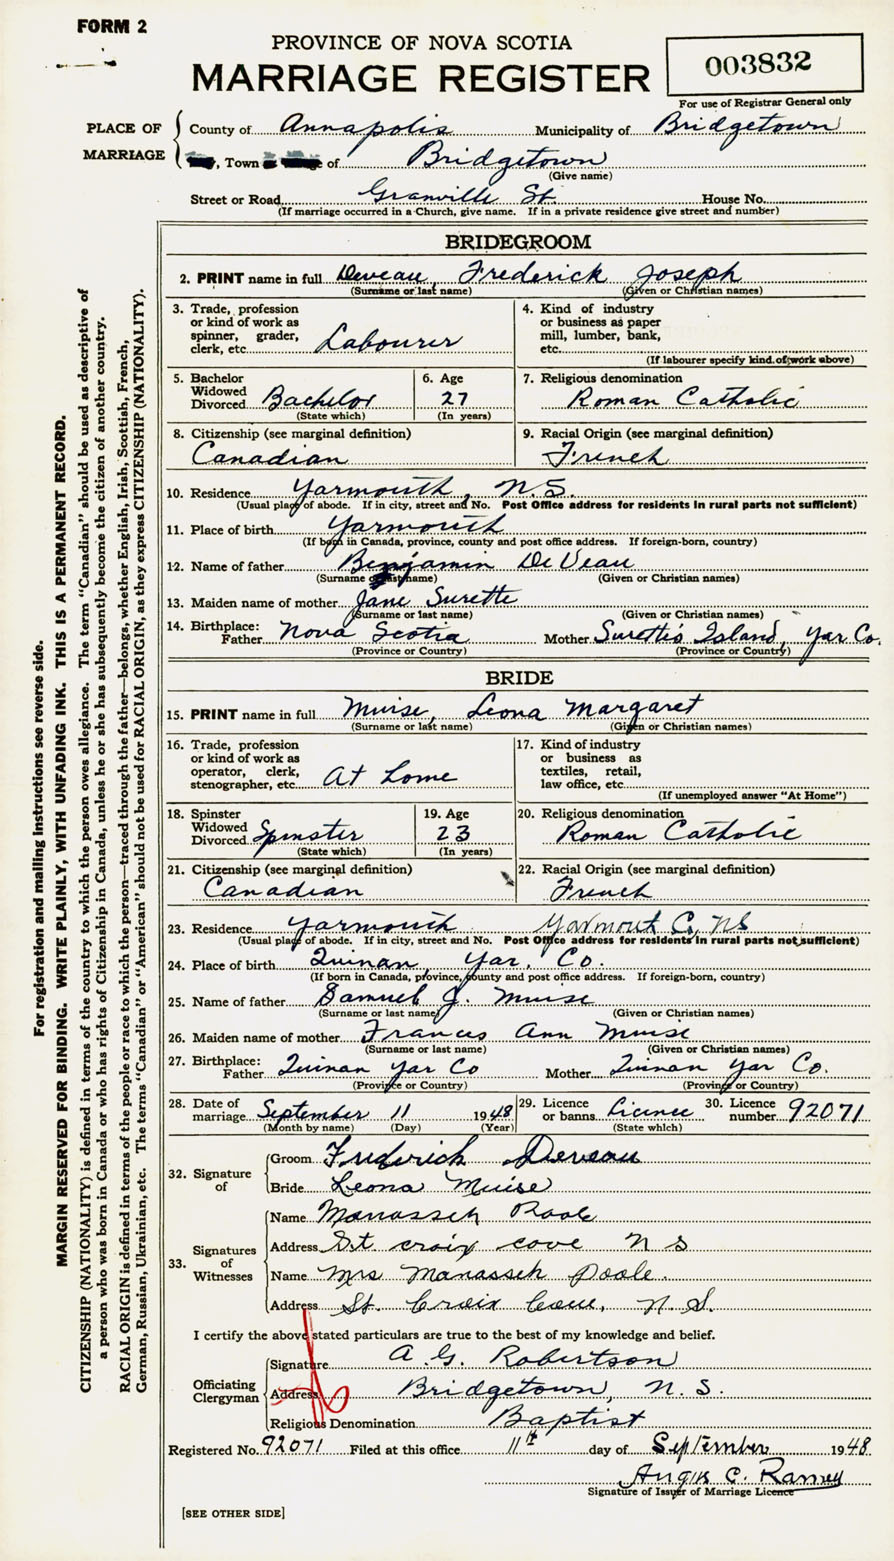 FORM 2
PROVINCE OF NOVA SCOTIA
MARRIAGE REGISTER
003832
For use of Registrar General only
PLACE OF MARRIAGE
County of Annapolis Municipality of Bridgetown
, Town of Bridgetown
(Give name)
Street or Road Granville St. House No.
(If marriage occurred in a Church, give name. If in a private residence give street and number)
BRIDEGROOM
2. PRINT name in full Deveau, Frederick Joseph
(Surname or last name) (Given or Christian names)
3. Trade, profession
or kind of work as
spinner, grader,
clerk, etc. Labourer
4. Kind of industry
or business as paper
mill, lumber, bank,
etc.
(If labourer specify kind of work above)
5. Bachelor
Widowed
Divorced Bachelor
(State which)
6. Age
27
(In years)
7. Religious denomination
Roman Catholic
8. Citizenship (see marginal definition)
Canadian
9. Racial Origin (see marginal definition)
French
10. Residence Yarmouth, N.S.
(Usual place of abode. If in city, street and No. Post Office address for residents in rural parts not suffficient)
11. Place of birth Yarmouth
(If born in Canada, province, county and post office address. If foreign-born, country)
12. Name of father Benjamin DeVeau
(Surname or last name) (Given or Christian names)
13. Maiden name of mother Jane Surette
(Surname or last name) (Given or Christian names)
14. Birthplace:
Father Nova Scotia Mother Surettis Island, Yar Co.
(Province or Country) (Province or Country)
BRIDE
15. PRINT name in full Muise, Leona Margaret
(Surname or last name) (Given or Christian names)
16. Trade, profession
or kind of work as
operator, clerk,
stenographer, etc. At home
17. Kind of industry
or business as
textiles, retail,
law office, etc.
(If unemployed answer "At Home")
18. Spinster
Widowed
Divorced Spinster
(State which)
19. Age
23
(In years)
20. Religious denomination
Roman Catholic
21. Citizenship (see marginal definition)
Canadian
22. Racial Origin (see marginal definition)
French
23. Residence Yarmouth Yarmouth C, NS
(Usual place of abode. If in city, street and No. Post Office address for residents in rural parts not sufficient)
24. Place of birth Quinan Yar. Co.
(If born in Canada, province, county and post office address. If foreign-born, country)
25. Name of father Samuel J. Muise
(Surname or last name) (Given or Christian names)
26. Maiden name of mother Frances Ann Muise
(Surname or last name) (Given or Christian names)
27. Birthplace:
Father Quinan Yar Co Mother Quinan Yar Co.
(Province or Country) (Province or Country)
28. Date of
marriage September 11 1948
(Month by name) (Day) (Year)
29. Licence
or banns Licence
(State which)
30. Licence
number 92071
32. Signature of
Groom Frederick Deveau
Bride Leona Muise
33. Signatures of Witnesses
Name Manasseh Poole
Address St. croix cove N S
Name Mrs Manasseh Poole.
Address St. Croix Cove, N.S.
I certify the above stated particulars are true to the best of my knowledge and belief.
Officiating Clergyman
Signature A. G. Robertson
Address Bridgetown, N.S.
Religious Denomination Baptist
Registered No. 92071 Filed at this office 11th day of September 1948
Angus C. Ramey
Signature of Issuer of Marriage Licence
[SEE OTHER SIDE]
For registration and mailing instructions see reverse side.
MARGIN RESERVED FOR BINDING. WRITE PLAINLY, WITH UNFADING INK. THIS IS A PERMANENT RECORD.
CITIZENSHIP (NATIONALITY) is defined in terms of the country to which the person owes allegiance. The term "Canadian" should be used as descriptive of
a person who was born in Canada or who has rights of Citizenship in Canada, unless he or she has subsequently become the citizen of another country.
RACIAL ORIGIN is defined in terms of the people or race to which the person—traced through the father—belongs, whether English, Irish, Scottish, French,
German, Russian, Ukrainian, etc. The terms "Canadian" or "American" should not be used for RACIAL ORIGIN, as they express CITIZENSHIP (NATIONALITY).